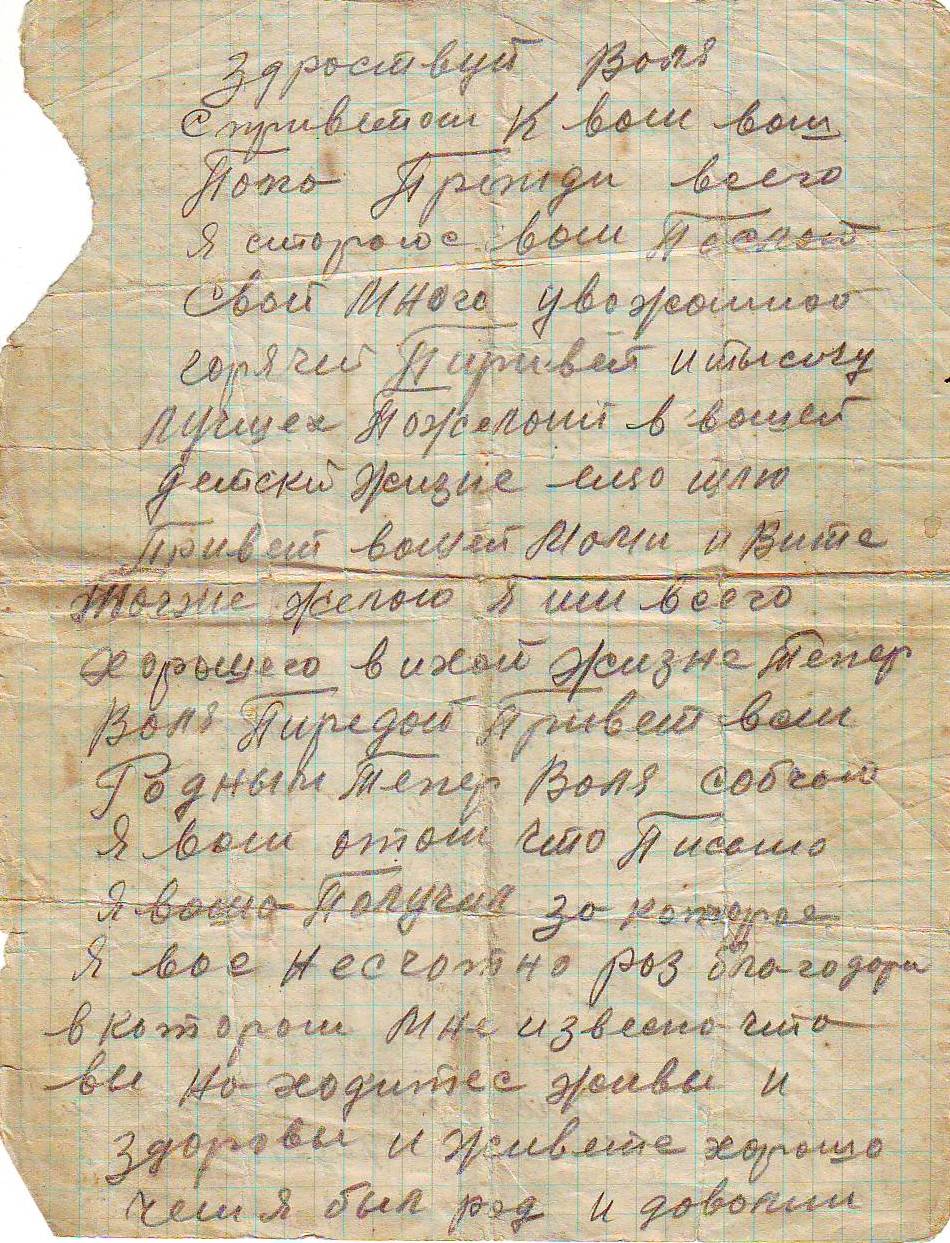 Здроствуй Воля
С приветом К вам ваш
Попа Прежди всего
Я стороюс вам Послат
Свой Много уважаимой
горячей Пиривет и тысячу
лучщех Пожеланий в вашей
детскй жизне ещо щлю
Привет вашей Мами и Вите
Тогже желаю я им всего
хорощего в ихой жизне Тепер
Воля Пиредай Привет вам
Родным Тепер Воля собчаю
Я вам отом что Писмо
Я вашо Получил зо которое
Я вас несчотно роз благодарю
в котором Мне извесно что
вы находитес живы и
здоровы и живете хорошо
чем я был рад и доволин